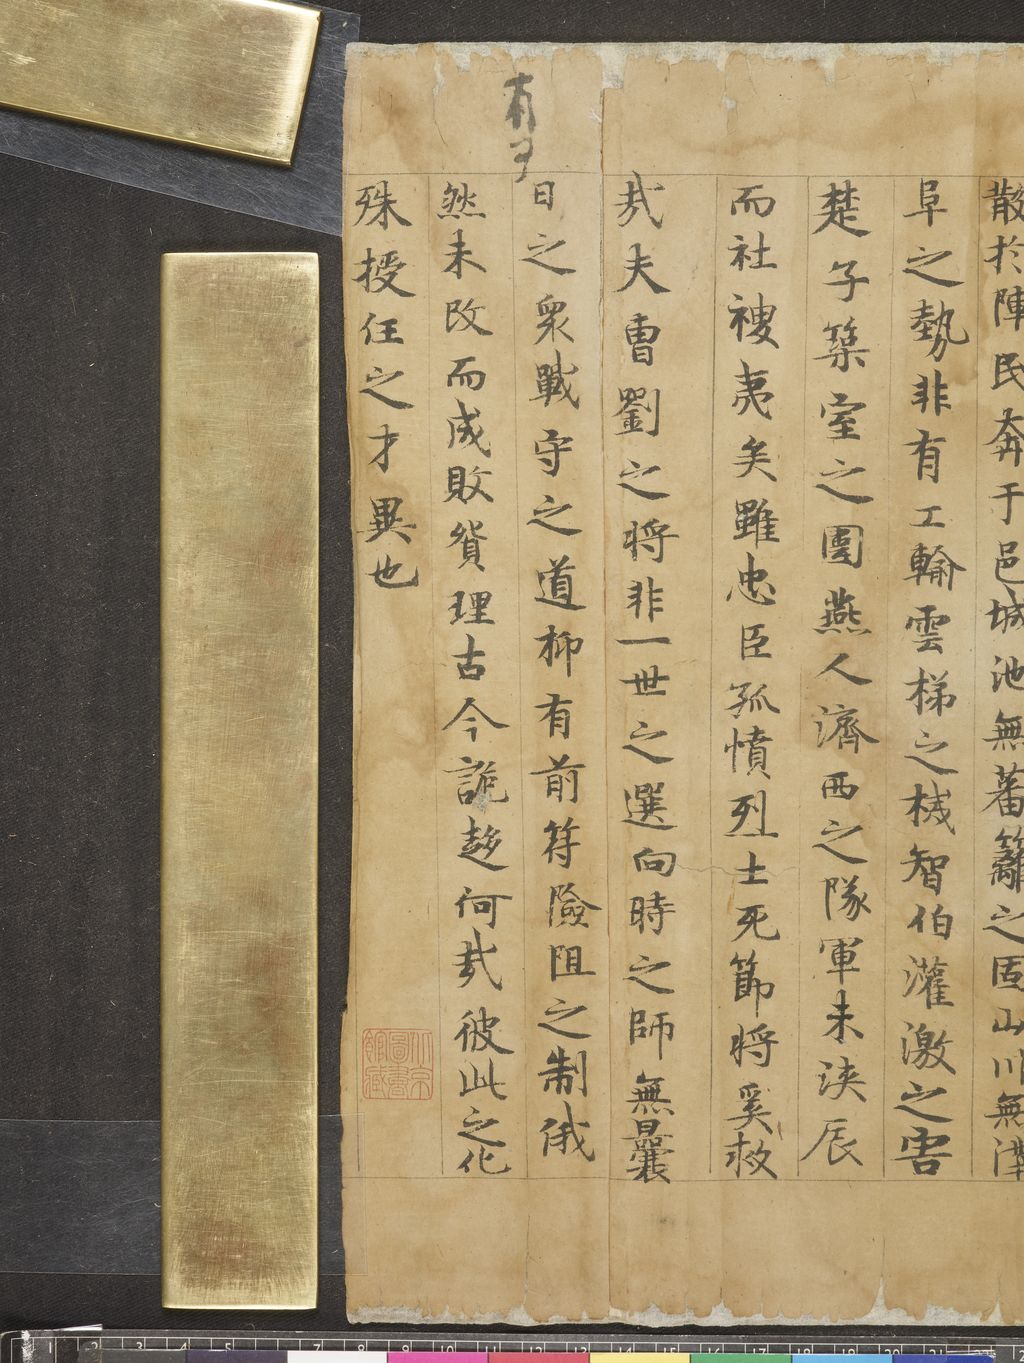 散於陣民奔于邑城池無蕃籬之固山川無溝
阜之勢非有工輸雲梯之械智伯灌激之害
楚子築室之圍燕人濟西之隊軍未浹辰
而社稷夷矣雖忠臣孤憤烈士死節將奚救
㢤夫曹劉之將非一世之選向時之師無曩
日之衆戰守之道抑有前符險阻之制俄
然未改而成敗貿理古今詭趍何㢤彼此之化
殊授任之才異也